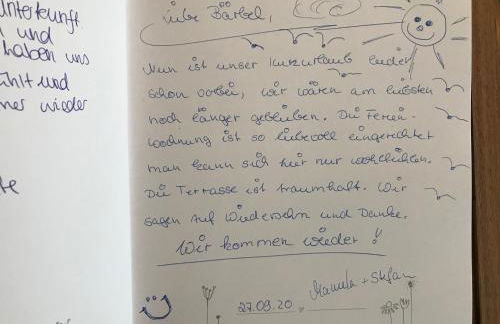 Unterkunft
und
haben uns
hlt und
mer wieder
liebe Bärbel,
Nun ist unser Kurzurlaub leider
schon vorbei, wir wären am liebsten
noch länger geblieben. Die Ferien-
wohnung ist so liebevoll eingerichtet
man kann sich hier nur wohlfühlen.
Die Terrasse ist traumhaft. Wir
sagen auf Wiedersehn und Danke.
Wir kommen wieder!
Manuela + Stefan
27.09.20